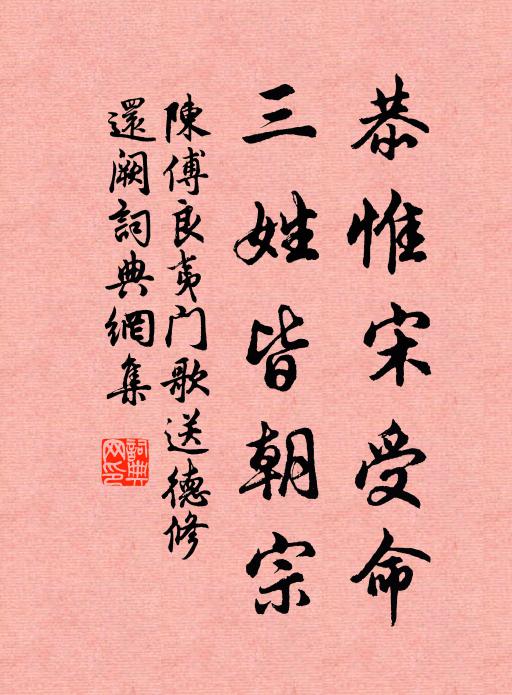 恭惟宋受命
三姓皆朝宗
陳傅良夷门歌送德修
還阙詞典網集
詞典
网印